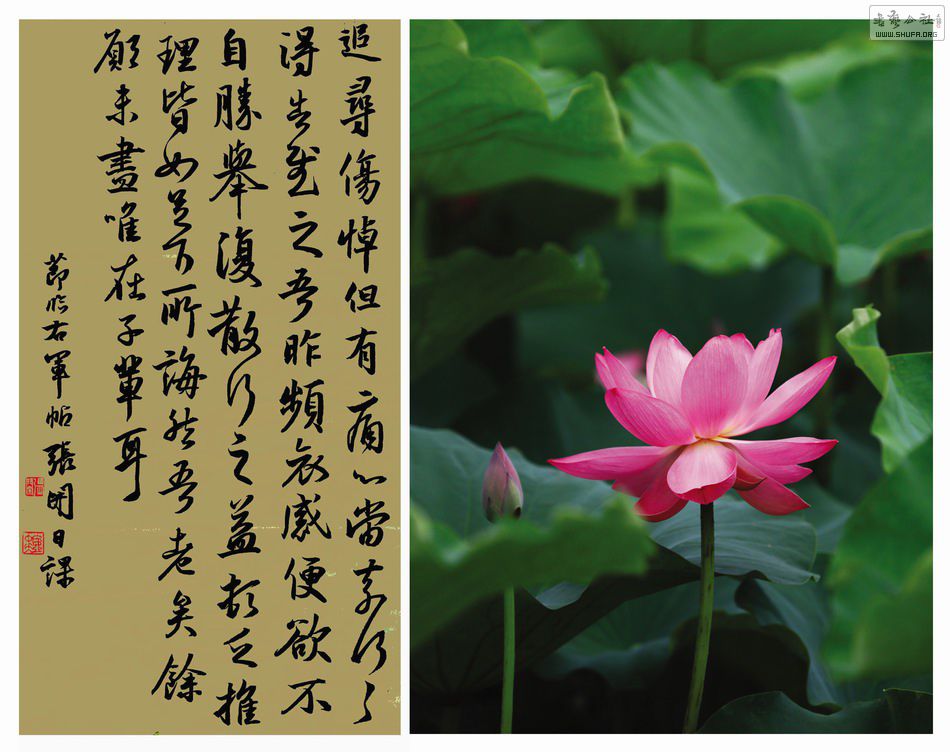 追尋傷悼但有痛心當奈何々
得告慰之吾昨頻哀感便欲不
自勝舉復散行之益頓乏推
理皆如足下所誨然吾老矣餘
願未盡唯在子輩耳
節臨右軍帖張開日課
WWW.SHUFA.ORG